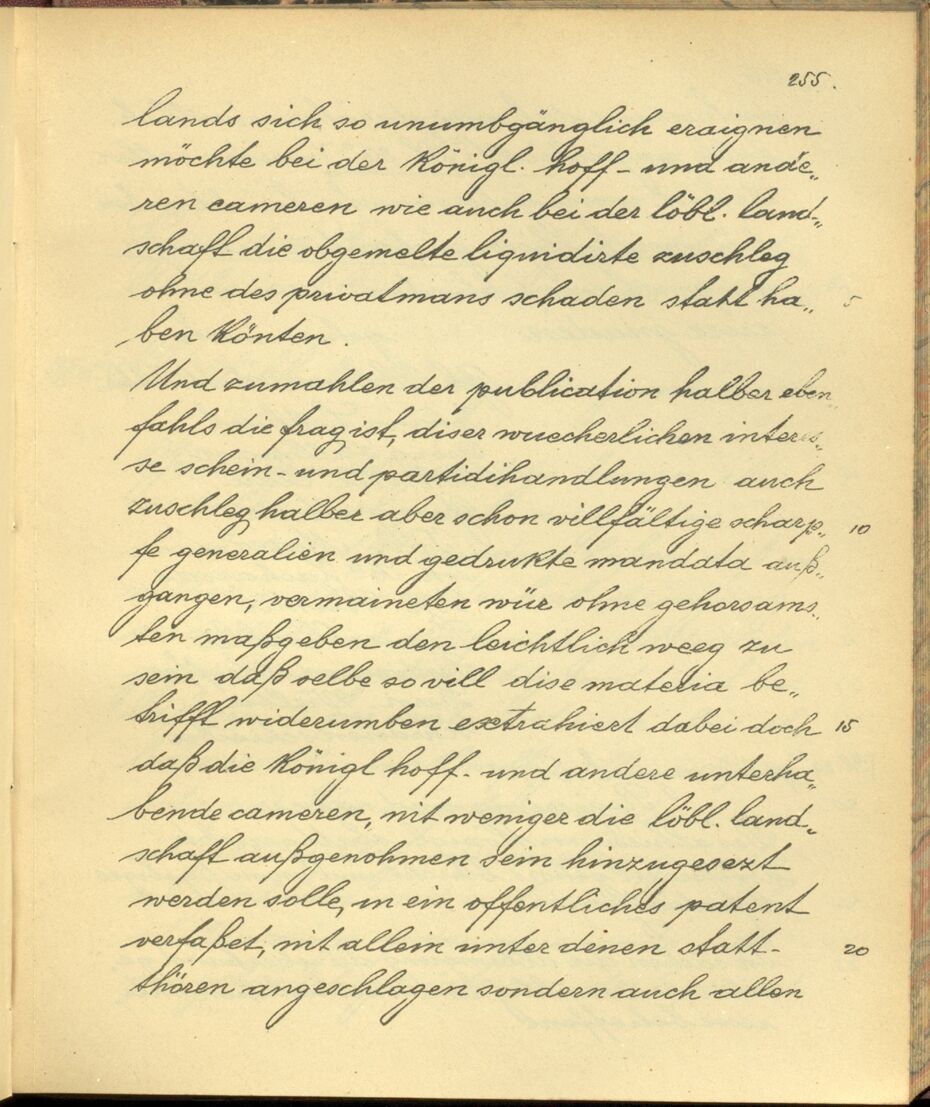 255.
lands sich so unumbgänglich eraignen
möchte bei der Königl. hoff- und ande„
ren cameren wie auch bei der löbl. land-„
schaft die obgemelte liquidirte zuschleg
ohne des privatmans schaden statt ha„ 5
ben Könten.
Und zumahlen der publication halber eben„
fahls die frag ist, diser wuecherlichen interes„
se schein- und partidihandlungen auch
zuschleg halber aber schon villfältige scharp„ 10
fe generalien und gedrukte mandata auß„
gangen, vermaineten wür ohne gehorsams„
ten maßgeben den leichtlich weeg zu
sein daß selbe so vill dise materia be„
trifft widerumben extrahiert dabei doch 15
daß die Königl hoff- und andere unterha„
bende cameren, nit weniger die löbl. land„
schaft außgenohmen sein hinzugesezt
werden solle, in ein offentliches patent
verfaßet, nit allein unter denen statt- 20
thören angeschlagen sondern auch allen